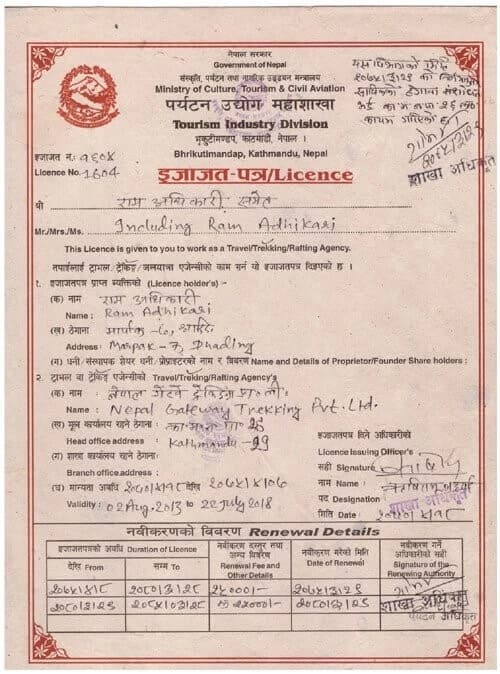 नेपाल सरकार
Government of Nepal
संस्कृति, पर्यटन तथा नागरिक उड्डयन मन्त्रालय
Ministry of Culture, Tourism & Civil Aviation
पर्यटन उद्योग महाशाखा
Tourism Industry Division
भृकुटीमण्डप, काठमाडौं, नेपाल ।
Bhrikutimandap, Kathmandu, Nepal
शाखा अधिकृत
इजाजत नं.: १६०४
Licence No. 1604
इजाजत-पत्र/Licence
श्री राम अधिकारी समेत
Mr./Mrs./Ms. Including Ram Adhikari
This Licence is given to you to work as a Travel/Trekking/Rafting Agency.
तपाईलाई ट्राभल/ट्रेकिङ्ग/जलयात्रा एजेन्सीको काम गर्न यो इजाजतपत्र दिइएको छ ।
१. इजाजतपत्र प्राप्त व्यक्तिको (Licence holder's) :-
(क) नाम : राम अधिकारी
Name : Ram Adhikari
(ख) ठेगाना : मार्पाक-७, धादिङ
Address : Marpak-7, Dhading
(ग) धनी/संस्थापक शेयर धनी/प्रोप्राइटरको नाम र विवरण Name and Details of Proprietor/Founder Share holders :
२. ट्राभल वा ट्रेकिङ्ग एजेन्सीको Travel/Trekking/Rafting Agency's
(क) नाम : नेपाल गेटवे ट्रेकिङ्ग प्रा.लि.
Name : Nepal Gateway Trekking Pvt. Ltd.
(ख) मूल कार्यालय रहने ठेगाना : का.म.न.पा.
Head office address : Kathmandu-29
(ग) शाखा कार्यालय रहने ठेगाना :
Branch office address :
(घ) मान्यता अवधि २०७०/४/१८ देखि २०७५/४/०६
Validity : 02 Aug. 2013 to 22 July 2018
इजाजतपत्र दिने अधिकारीको
Licence Issuing Officer's
सही Signature
नाम Name :
पद Designation : शाखा अधिकृत
मिति Date : २०७०/४/१८
नवीकरणको विवरण Renewal Details
इजाजतपत्रको अवधि Duration of Licence
देखि From
सम्म To
नवीकरण दस्तुर तथा अन्य विवरण
Renewal Fee and Other Details
नवीकरण गरेको मिति
Date of Renewal
नवीकरण गर्ने अधिकारीको सही
Signature of the Renewing Authority
२०७५/४/८ २०८०/३/२९ २५०००।- २०७५/३/२९
२०८०/३/२९ २०८५/३/२८ २०८०/३/२९
शाखा अधिकृत